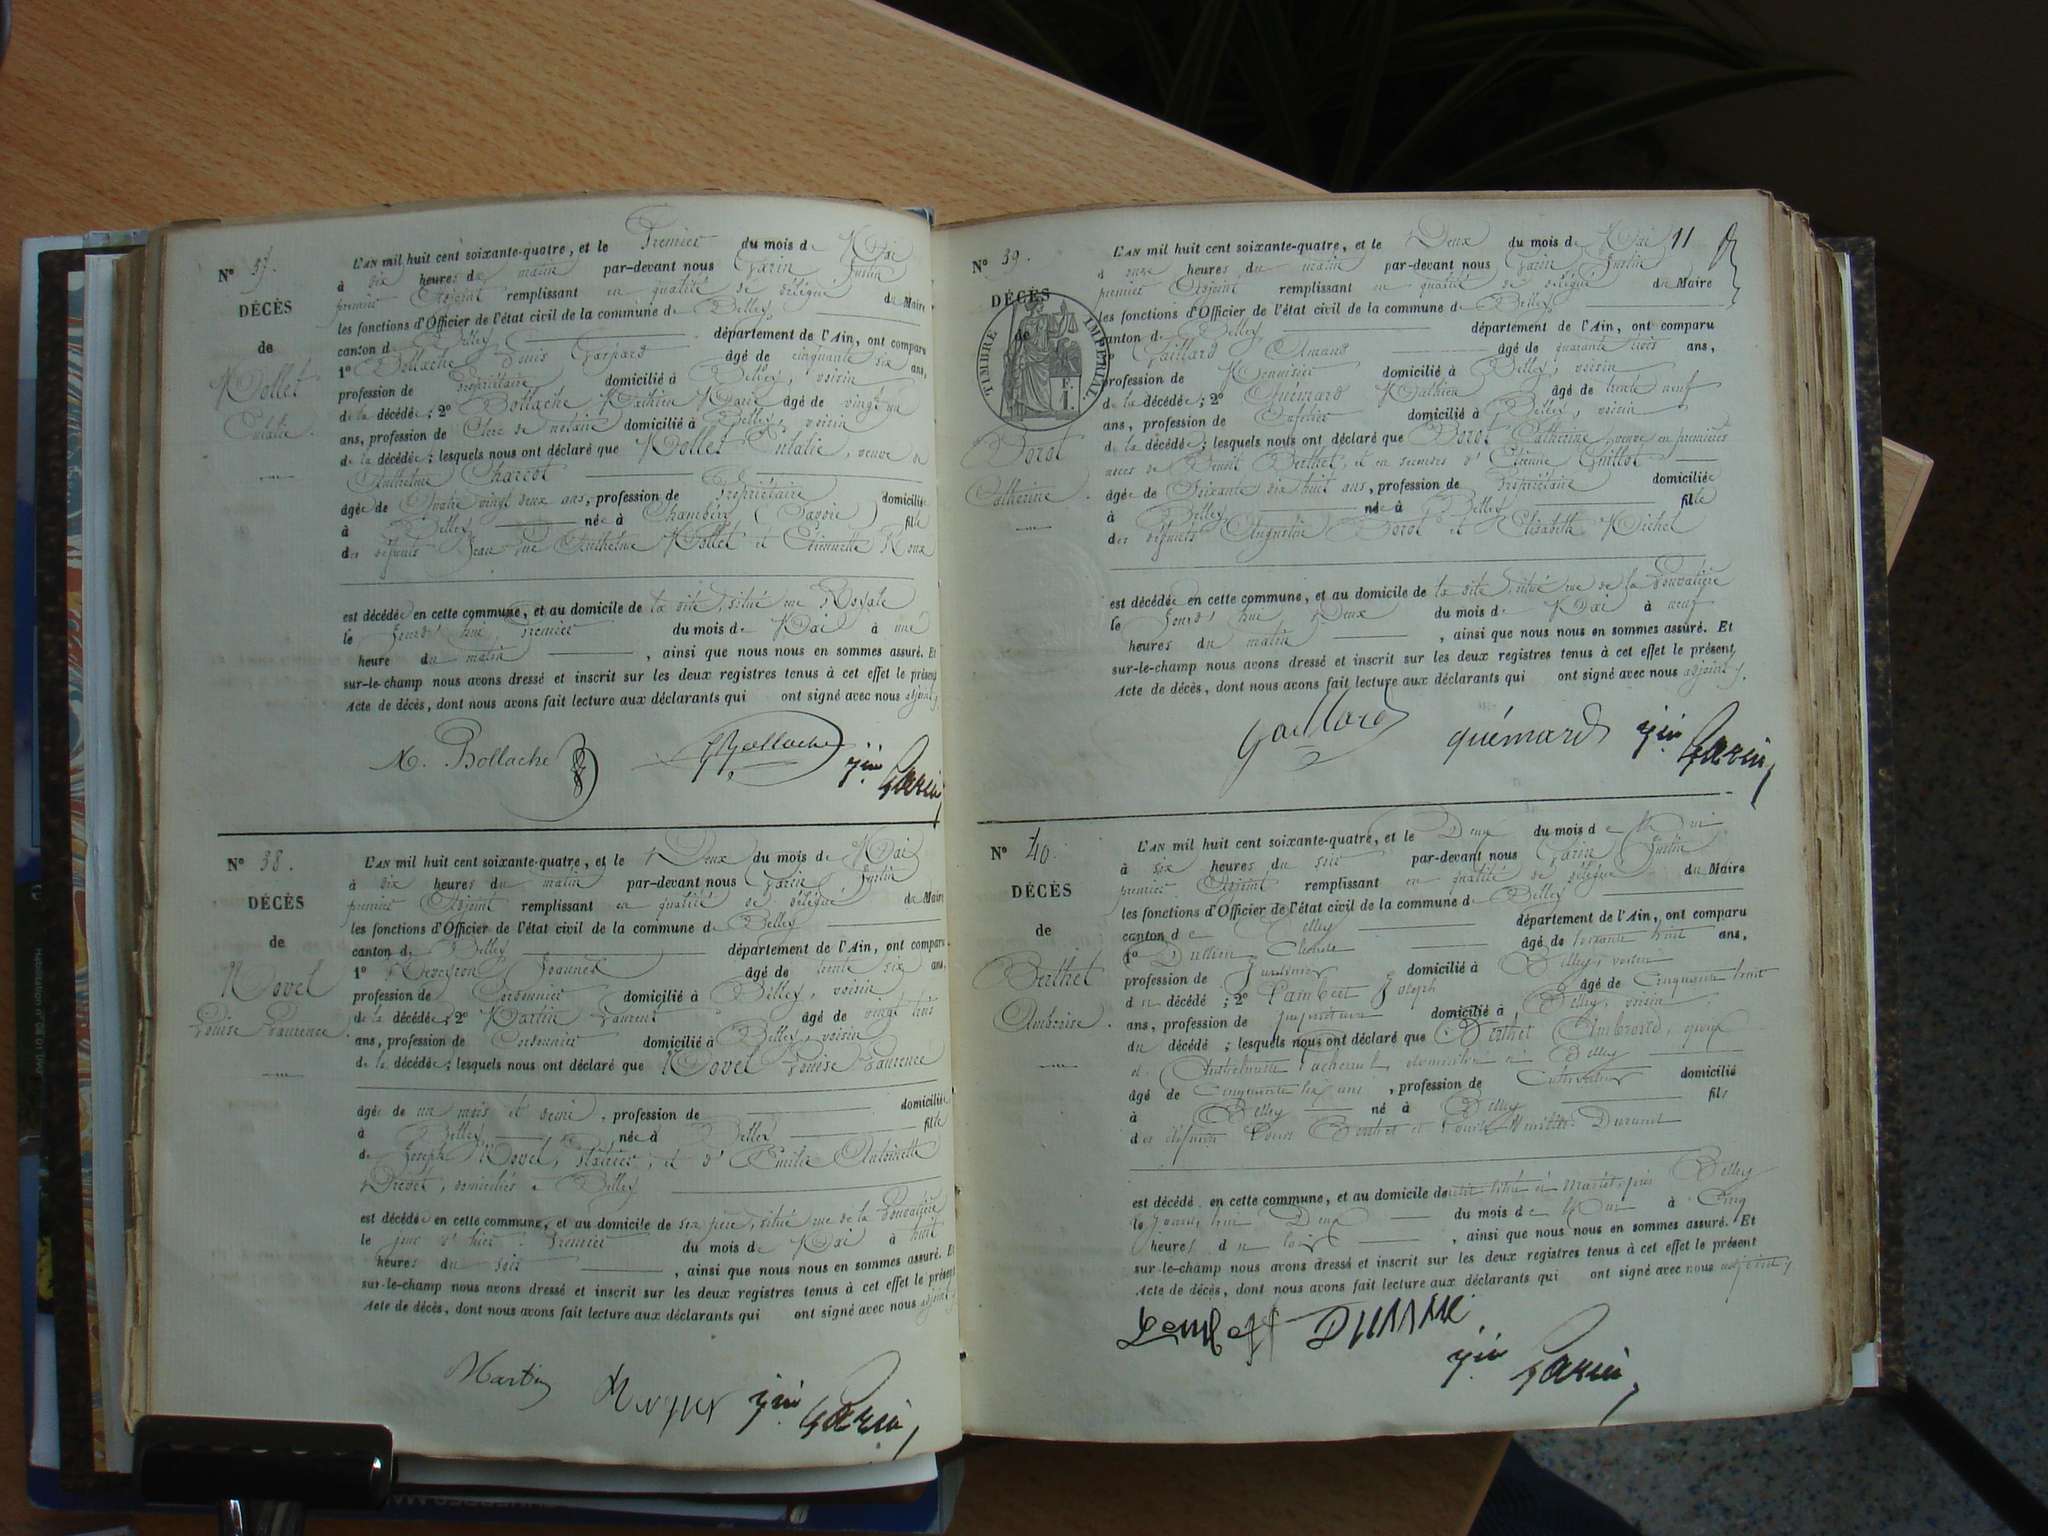 Nº 37.
DÉCÈS
de
Mollet
Eulalie.
L'AN mil huit cent soixante-quatre, et le Premier du mois de Mai
à dix heures du matin par-devant nous Garin Justin
premier Adjoint remplissant en qualité de délégué du Maire
les fonctions d'Officier de l'état civil de la commune de Belley
canton de Belley département de l'Ain, ont comparu
1º Bollache Louis Gaspard âgé de cinquante six ans,
profession de Propriétaire domicilié à Belley, voisin
de la décédée; 2º Bollache Mathieu Marie âgé de vingt un
ans, profession de Clerc de notaire domicilié à Belley, voisin
de la décédée; lesquels nous ont déclaré que Mollet Eulalie, veuve de
Anthelme Charcot
âgée de Quatre vingt deux ans, profession de Propriétaire domiciliée
à Belley née à Chambéry (Savoie) fille
des défunts Jean Anthelme Mollet et Etiennette Roux
est décédée en cette commune, et au domicile de la dite, situé rue Royale
le Jourd'hui Premier du mois de Mai à une
heure du matin, ainsi que nous nous en sommes assuré. Et
sur-le-champ nous avons dressé et inscrit sur les deux registres tenus à cet effet le présent
Acte de décès, dont nous avons fait lecture aux déclarants qui ont signé avec nous adjoint.
M. Bollache Bollache Jin Garin
Nº 38.
DÉCÈS
de
Novel
Louise Laurence.
L'AN mil huit cent soixante-quatre, et le Deux du mois de Mai
à dix heures du matin par-devant nous Garin Justin
premier Adjoint remplissant en qualité de délégué du Maire
les fonctions d'Officier de l'état civil de la commune de Belley
canton de Belley département de l'Ain, ont comparu
1º Joannes âgé de trente six ans,
profession de Cordonnier domicilié à Belley, voisin
de la décédée; 2º Martin Laurent âgé de vingt trois
ans, profession de Cordonnier domicilié à Belley, voisin
de la décédée; lesquels nous ont déclaré que Novel Louise Laurence
âgée de un mois et demi, profession de domiciliée
à Belley née à Belley fille
de Joseph Novel, et d'Emilie Antoinette
Drevet, domiciliés à Belley
est décédée en cette commune, et au domicile de son père, situé rue de la
le jour d'hier Premier du mois de Mai à huit
heures du soir, ainsi que nous nous en sommes assuré. Et
sur-le-champ nous avons dressé et inscrit sur les deux registres tenus à cet effet le présent
Acte de décès, dont nous avons fait lecture aux déclarants qui ont signé avec nous adjoint
Martin Jin Garin
11
Nº 39.
DÉCÈS
de
TIMBRE IMPÉRIAL
Borot
Catherine.
L'AN mil huit cent soixante-quatre, et le Deux du mois de Mai
à onze heures du matin par-devant nous Garin Justin
premier Adjoint remplissant en qualité de délégué du Maire
les fonctions d'Officier de l'état civil de la commune de Belley
canton de Belley département de l'Ain, ont comparu
Gaillard Amand âgé de quarante trois ans,
profession de Menuisier domicilié à Belley, voisin
de la décédée; 2º Quémard Mathieu âgé de trente neuf
ans, profession de Cafetier domicilié à Belley, voisin
de la décédée; lesquels nous ont déclaré que Borot Catherine, veuve en premières
noces de Benoît Berthet, et en secondes d'Etienne Guillot
âgée de Soixante dix huit ans, profession de Propriétaire domiciliée
à Belley née à Belley fille
des défunts Augustin Borot et Elisabeth Michel
est décédée en cette commune, et au domicile de la dite, situé rue de la
le Jourd'hui Deux du mois de Mai à neuf
heures du matin, ainsi que nous nous en sommes assuré. Et
sur-le-champ nous avons dressé et inscrit sur les deux registres tenus à cet effet le présent
Acte de décès, dont nous avons fait lecture aux déclarants qui ont signé avec nous adjoint.
Gaillard quémard Jin Garin
Nº 40.
DÉCÈS
de
Berthet
Ambroise.
L'AN mil huit cent soixante-quatre, et le Deux du mois de Mai
à six heures du soir par-devant nous Garin Justin
premier Adjoint remplissant en qualité de délégué du Maire
les fonctions d'Officier de l'état civil de la commune de Belley
canton de Belley département de l'Ain, ont comparu
1º Dullin Claude âgé de soixante huit ans,
profession de Jardinier domicilié à Belley, voisin
du décédé; 2º Lambert Joseph âgé de Cinquante huit
ans, profession de domicilié à Belley, voisin
du décédé; lesquels nous ont déclaré que Berthet Ambroise, époux
domicilié à Belley
âgé de Cinquante six ans, profession de Cultivateur domicilié
à Belley né à Belley fils
des défunts Louis Berthet et Durand
est décédé en cette commune, et au domicile de près Belley
le Jourd'hui Deux du mois de Mai à Cinq
heures du soir, ainsi que nous nous en sommes assuré. Et
sur-le-champ nous avons dressé et inscrit sur les deux registres tenus à cet effet le présent
Acte de décès, dont nous avons fait lecture aux déclarants qui ont signé avec nous adjoint
Jin Garin